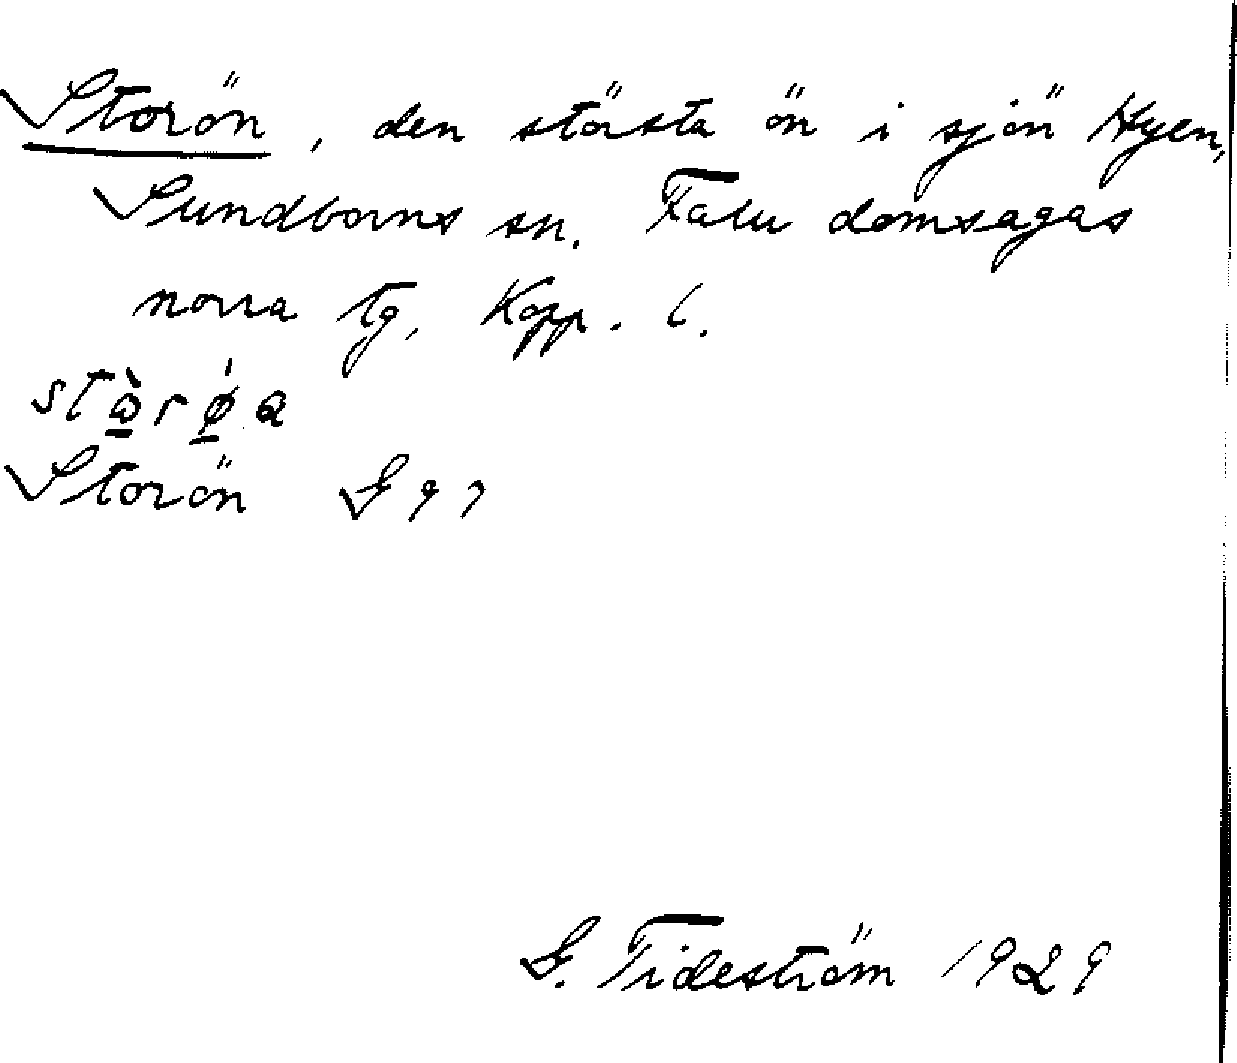 Storön, den största ön i sjön Hyen,
Sundborns sn. Falu domsagas
norra tg, Kopp. l.
stὼrǿa
Storön G 97
G. Tideström 1929